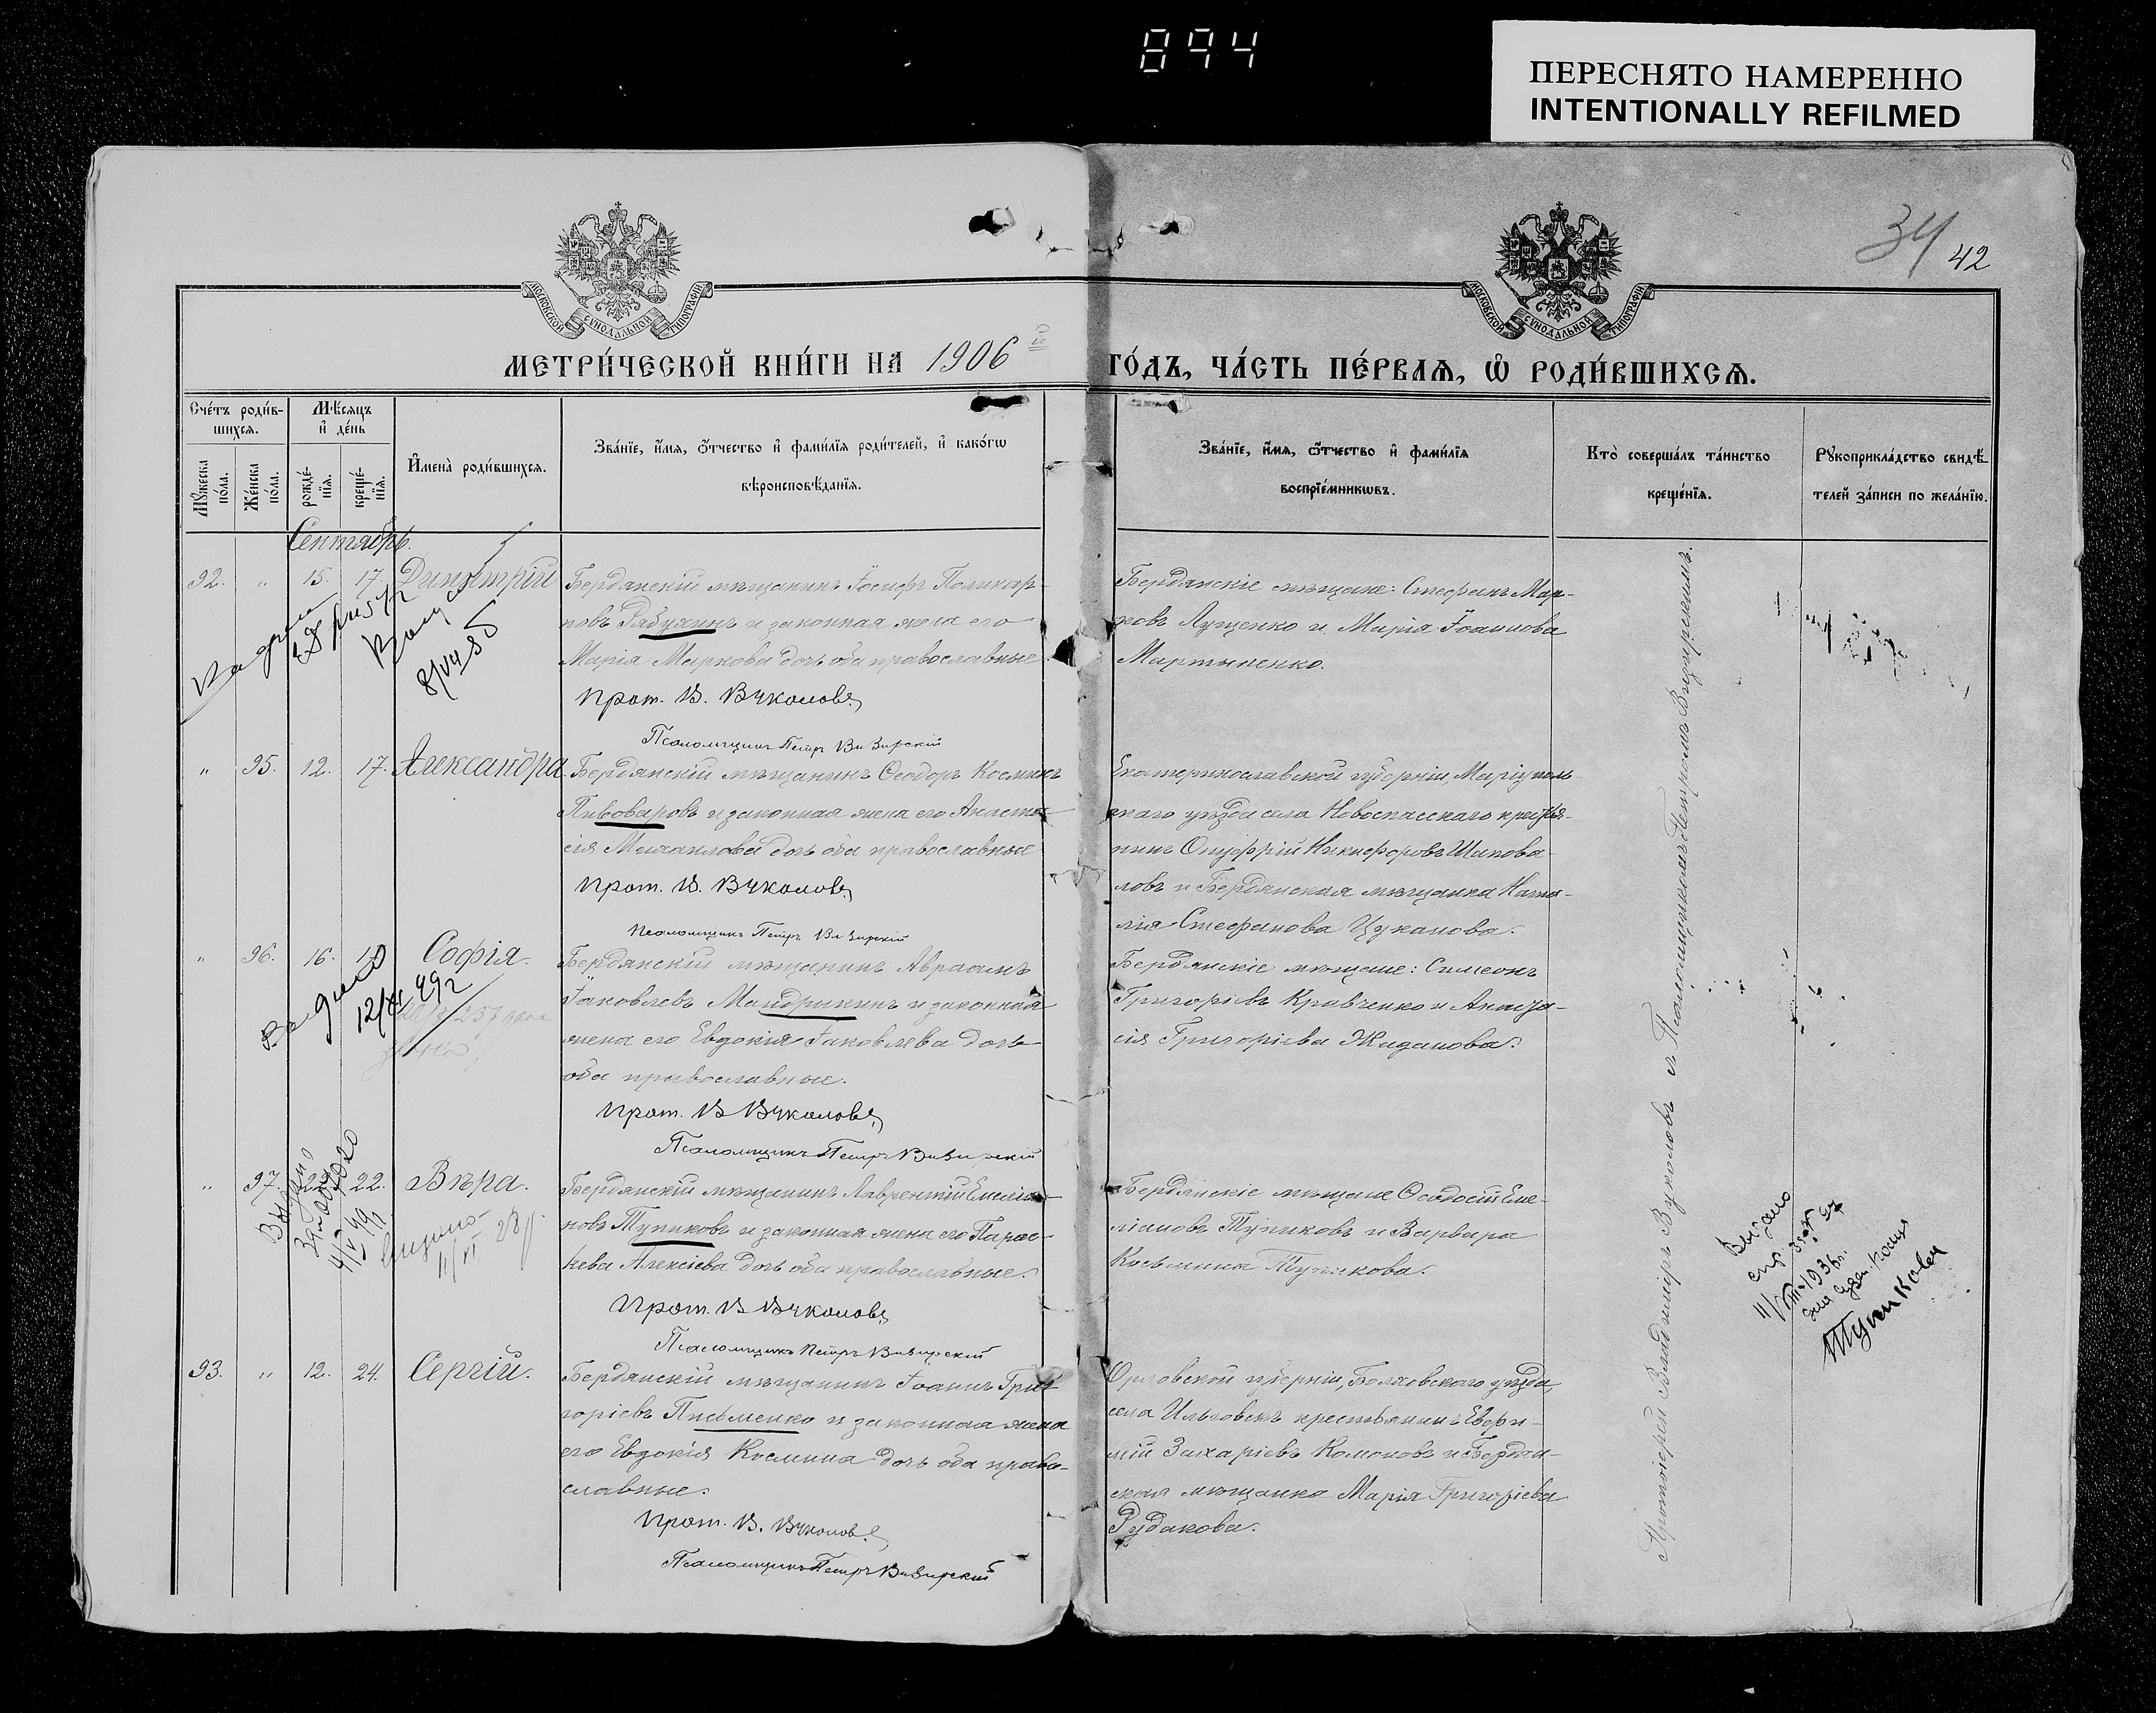 894
ПЕРЕСНЯТО НАМЕРЕННО
INTENTIONALLY REFILMED
34 42
МОСКОВСКОЙ СѴНОДАЛЬНОЙ ТИПОГРАФІИ
МОСКОВСКОЙ СѴНОДАЛЬНОЙ ТИПОГРАФІИ
МЕТРИ́ЧЕСКОЙ КНИ́ГИ НА 1906 й ГО́ДЪ, ЧА́СТЬ ПЕ́РВАѦ, Ѡ҆ РОДИ́ВШИХСѦ.
Сче́тъ роди́в-
шихсѧ.
Мѣ́сѧцъ
и҆ де́нь
Мꙋ́жеска по́ла.
Же́нска по́ла.
рожде́-
нїѧ.
креще́-
нїѧ.
И҆мена̀ роди́вшихсѧ.
Зва́нїе, и҆́мѧ, ѻ҆́тчество и҆ фами́лїѧ роди́телей, и҆ како́гѡ
вѣроисповѣ́данїѧ.
Зва́нїе, и҆́мѧ, ѻ҆́тчество и҆ фами́лїѧ
воспрїе́мникѡвъ.
Кто̀ соверша́лъ та́инство
креще́нїѧ.
Рꙋкоприкла́дство свидѣ́-
телей за́писи по жела́нїю.
Сентябрь.
92. " 15. 17. Димитрій
Бердянскій мѣщанинъ Іосифъ Поликар-
повъ Рябухинъ и законная жена его
Марія Маркова дочь оба православные.
Прот. В. Вуколовъ
Псаломщикъ Петръ Визирскій
Бердянскіе мѣщане: Стефанъ Мар-
ковъ Луценко и Марія Іоаннова
Мартыненко.
" 95. 12. 17. Александра
Бердянскій мѣщанинъ Ѳеодоръ Косминъ
Пивоваровъ и законная жена его Анаста-
сія Михаилова дочь оба православные
Прот. В. Вуколовъ
Псаломщикъ Петръ Визирскій
Екатеринославской губерніи, Маріуполь-
скаго уѣзда села Новоспасскаго кресть-
нинъ Онуфрій Никифоровъ Шапова-
ловъ и Бердянская мѣщанка Ната-
лія Стефанова Цуканова.
" 96. 16. Софія.
Выдано
Бердянскій мѣщанинъ Авраамъ
Іаковлевъ Мандрыкинъ и законная
жена его Евдокія Іаковлева дочь
оба православные.
Прот. В Вуколовъ
Псаломщикъ Петръ Визирскій
Бердянскіе мѣщане: Симеонъ
Григоріевъ Кравченко и Анаста-
сія Григоріева Жаданова.
" 97. 22. Вѣра.
Выдано
Бердянскій мѣщанинъ Лаврентій Емелиа-
новъ Тупиковъ и законная жена его Парас-
кева Алексіева дочь оба православные.
Прот. В Вуколовъ
Псаломщикъ Петръ Визирскій
Бердянскіе мѣщане Ѳеодосій Еме-
ліановъ Тупиковъ и Варвара
Косьмина Тупикова.
Выдано
93. " 12. 24. Сергій.
Бердянскій мѣщанинъ Іоаннъ Гри-
горіевъ Письменко и законная жена
его Евдокія Космина дочь оба право-
славные.
Прот. В. Вуколовъ
Псаломщикъ Петръ Визирскій
Орловской губерніи, Болховскаго уѣзда,
села Ильговскъ крестьянинъ Евфи-
мій Захаріевъ Комоновъ и Бердян-
ская мѣщанка Марія Григоріева
Рудакова.
Протоіерей Владиміръ Вуколовъ съ Псаломщикомъ Петромъ Визирскимъ.